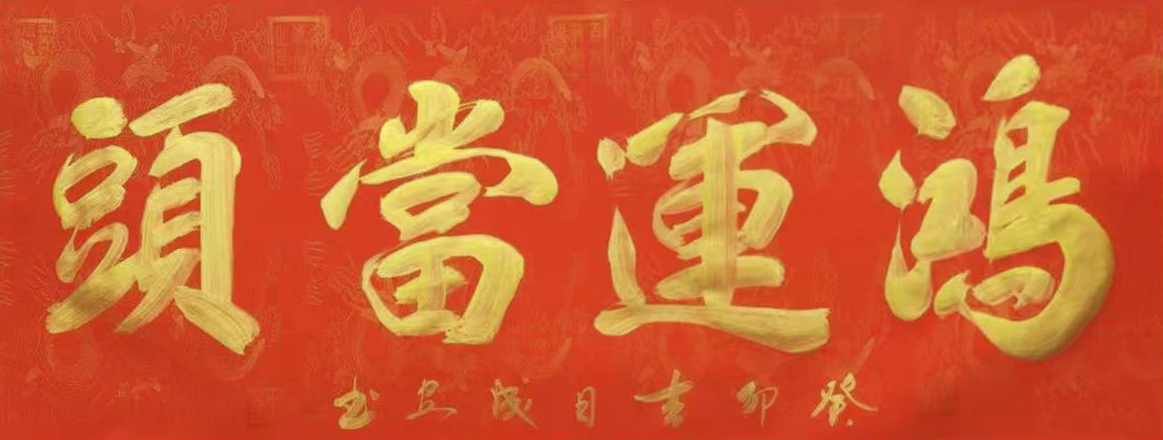 鴻運當頭
癸卯吉日成安书